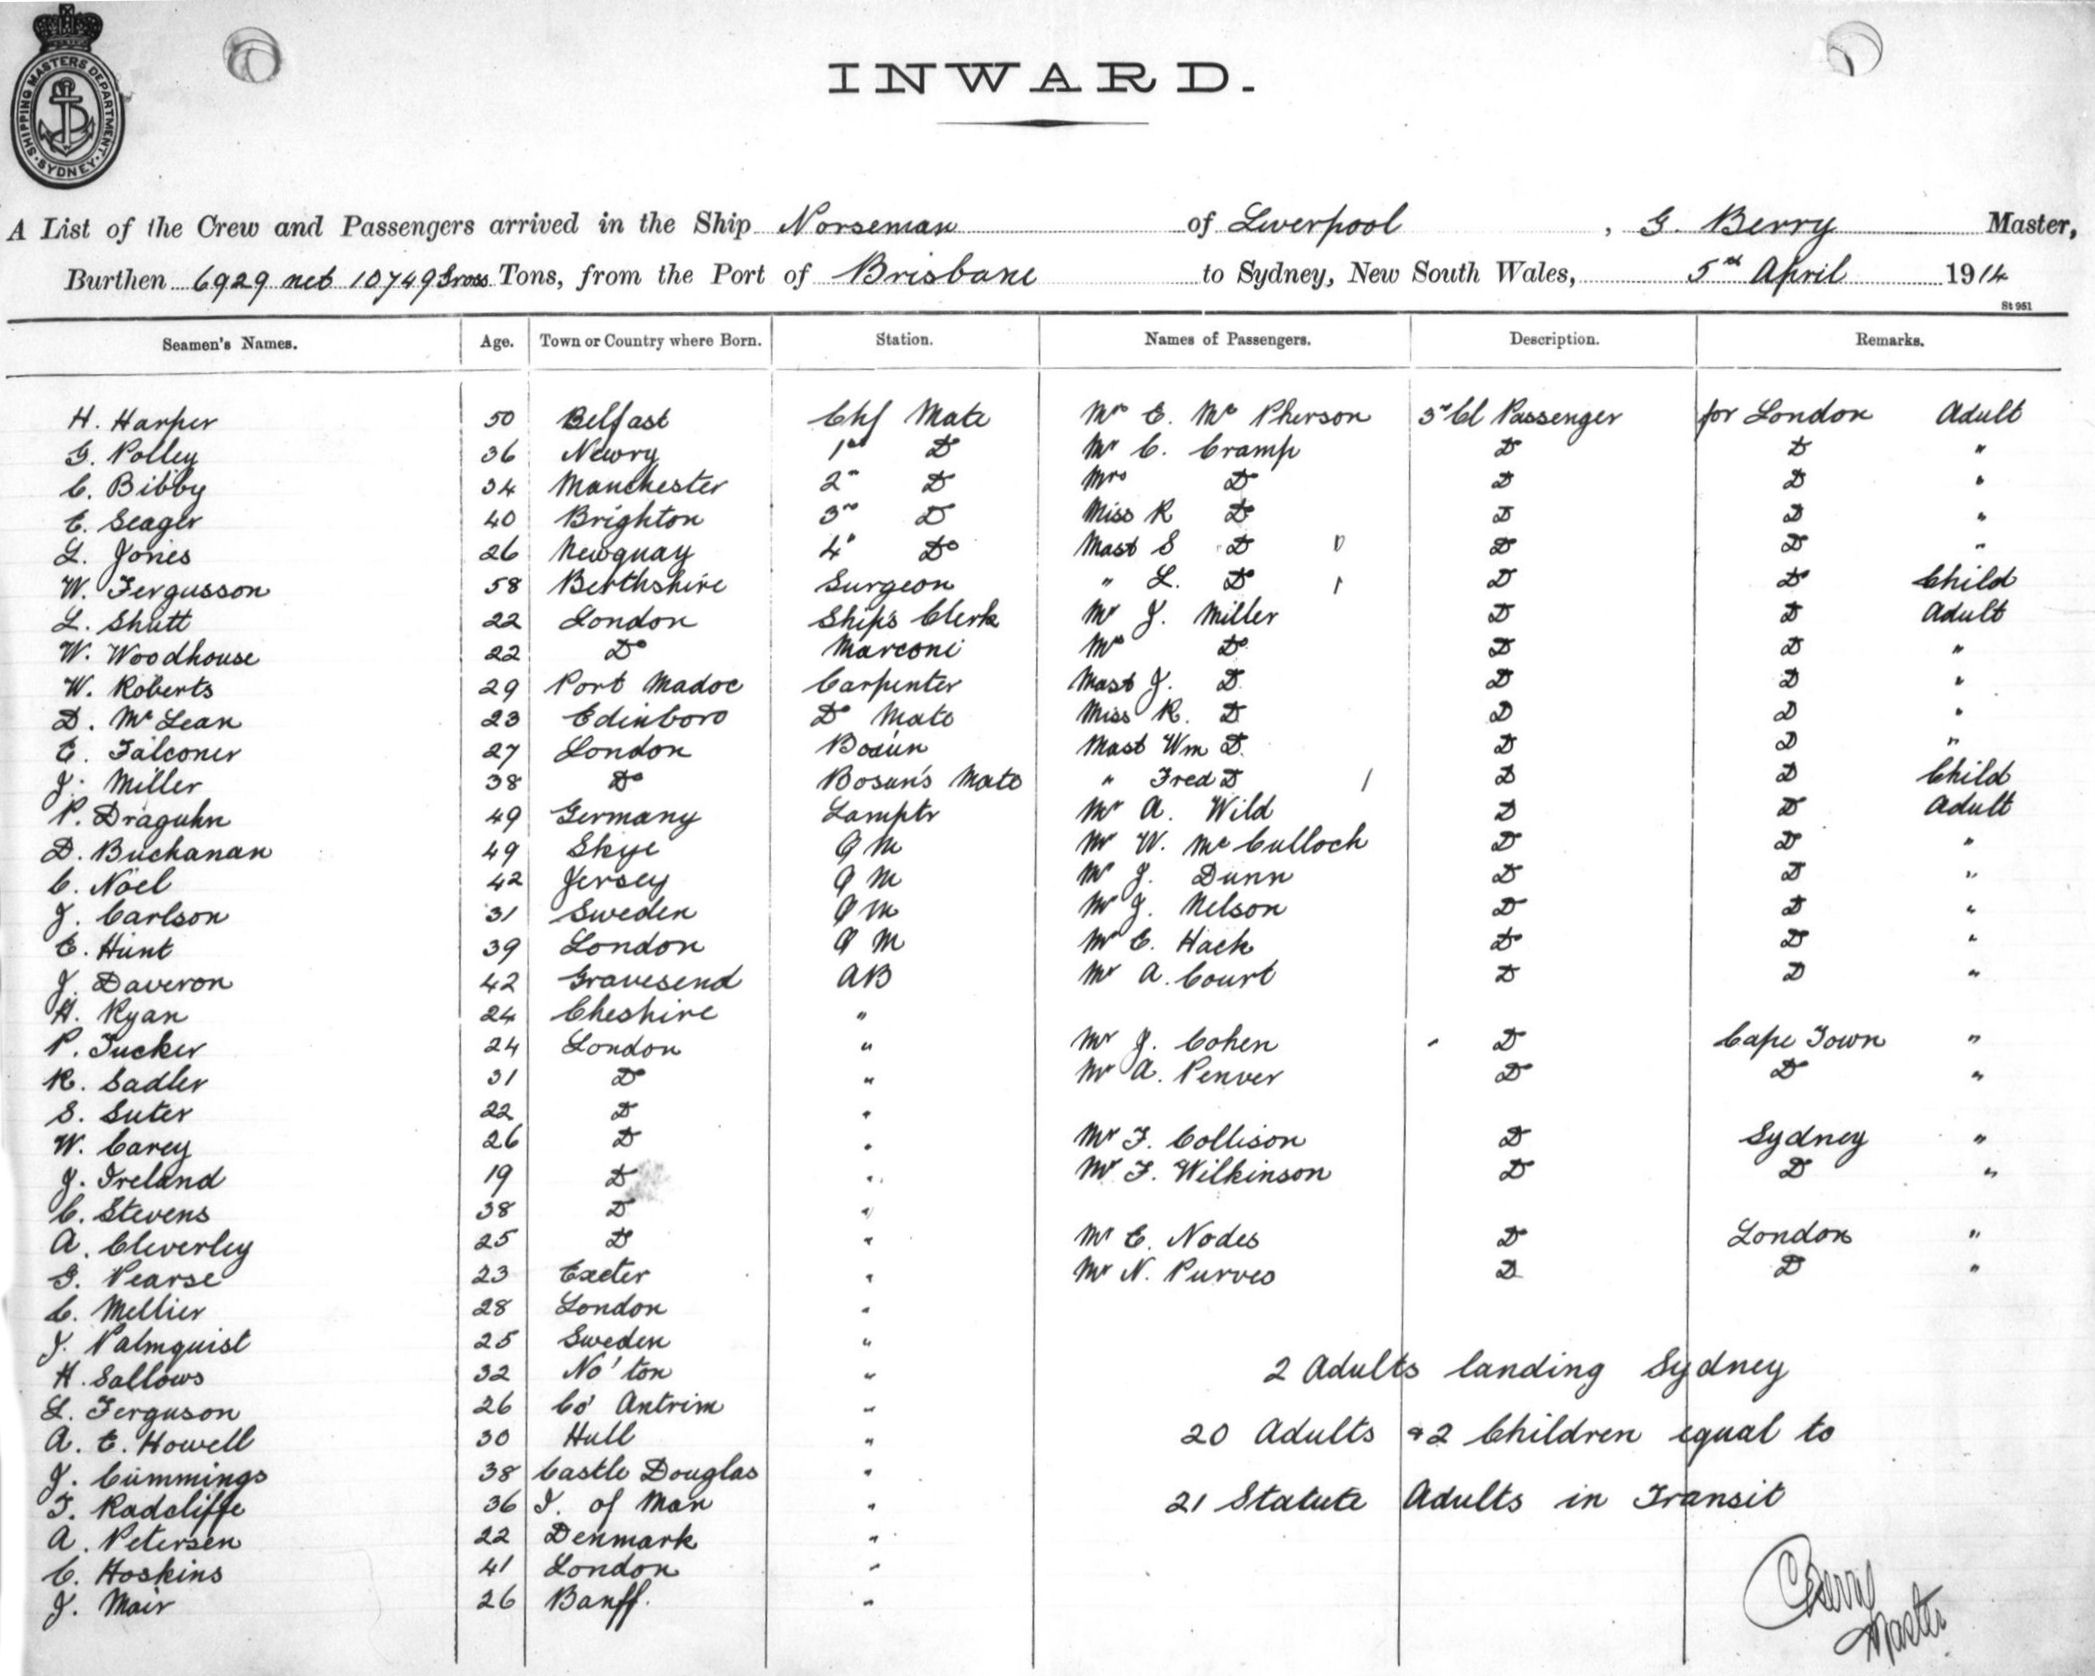 SHIPPING MASTERS DEPARTMENT. SYDNEY
INWARD.
A List of the Crew and Passengers arrived in the Ship Norseman of Liverpool, G. Berry Master,
Burthen 6929 net 10749 Gross Tons, from the Port of Brisbane to Sydney, New South Wales, 5th April 1914
St 951
Seamen's Names. Age. Town or Country where Born. Station. Names of Passengers. Description. Remarks.
H. Harper 50 Belfast Chf Mate Mrs E. Mc Pherson 3rd Cl Passenger for London Adult
G. Polley 36 Newry 1st Do Mr C. Cramp Do Do "
C. Bibby 34 Manchester 2nd Do Mrs Do Do Do "
E. Seager 40 Brighton 3rd Do Miss R Do Do Do "
L. Jones 26 Newquay 4th Do Mast S Do Do Do "
W. Fergusson 58 Berthshire Surgeon " L. Do 1 Do Do Child
L. Shutt 22 London Ship's Clerk Mr J. Miller Do Do Adult
W. Woodhouse 22 Do Marconi Mrs Do Do Do "
W. Roberts 29 Port Madoc Carpenter Mast J. Do Do Do "
D. Mc Lean 23 Edinboro Do Mate Miss R. Do Do Do "
E. Falconer 27 London Bosun Mast Wm Do Do Do "
J. Miller 38 Do Bosun's Mate " Fred Do 1 Do Do Child
P. Draguhn 49 Germany Lamptr Mr A. Wild Do Do Adult
D. Buchanan 49 Skye Q M Mr W. Mc Culloch Do Do "
C. Noel 42 Jersey Q M Mr J. Dunn Do Do "
J. Carlson 31 Sweden Q M Mr J. Nelson Do Do "
E. Hunt 39 London Q M Mr E. Hack Do Do "
J. Daveron 42 Gravesend AB Mr A. Court Do Do "
H. Ryan 24 Cheshire "
P. Tucker 24 London " Mr J. Cohen Do Cape Town "
R. Sadler 31 Do " Mr A. Penver Do Do "
S. Suter 22 Do "
W. Carey 26 Do " Mr F. Collison Do Sydney "
J. Ireland 19 Do " Mr F. Wilkinson Do Do "
C. Stevens 38 Do "
A. Cleverley 25 Do " Mr E. Nodes Do London "
G. Pearse 23 Exeter " Mr N. Purves Do Do "
C. Mellier 28 London "
J. Palmquist 25 Sweden "
H. Sallows 32 No'ton "
L. Ferguson 26 Co' Antrim "
A. E. Howell 30 Hull "
J. Cummings 38 Castle Douglas "
T. Radcliffe 36 I. of Man "
A. Petersen 22 Denmark "
C. Hoskins 41 London "
J. Mair 26 Banff. "
2 Adults landing Sydney
20 Adults & 2 Children equal to
21 Statute Adults in Transit
GBerry
Master